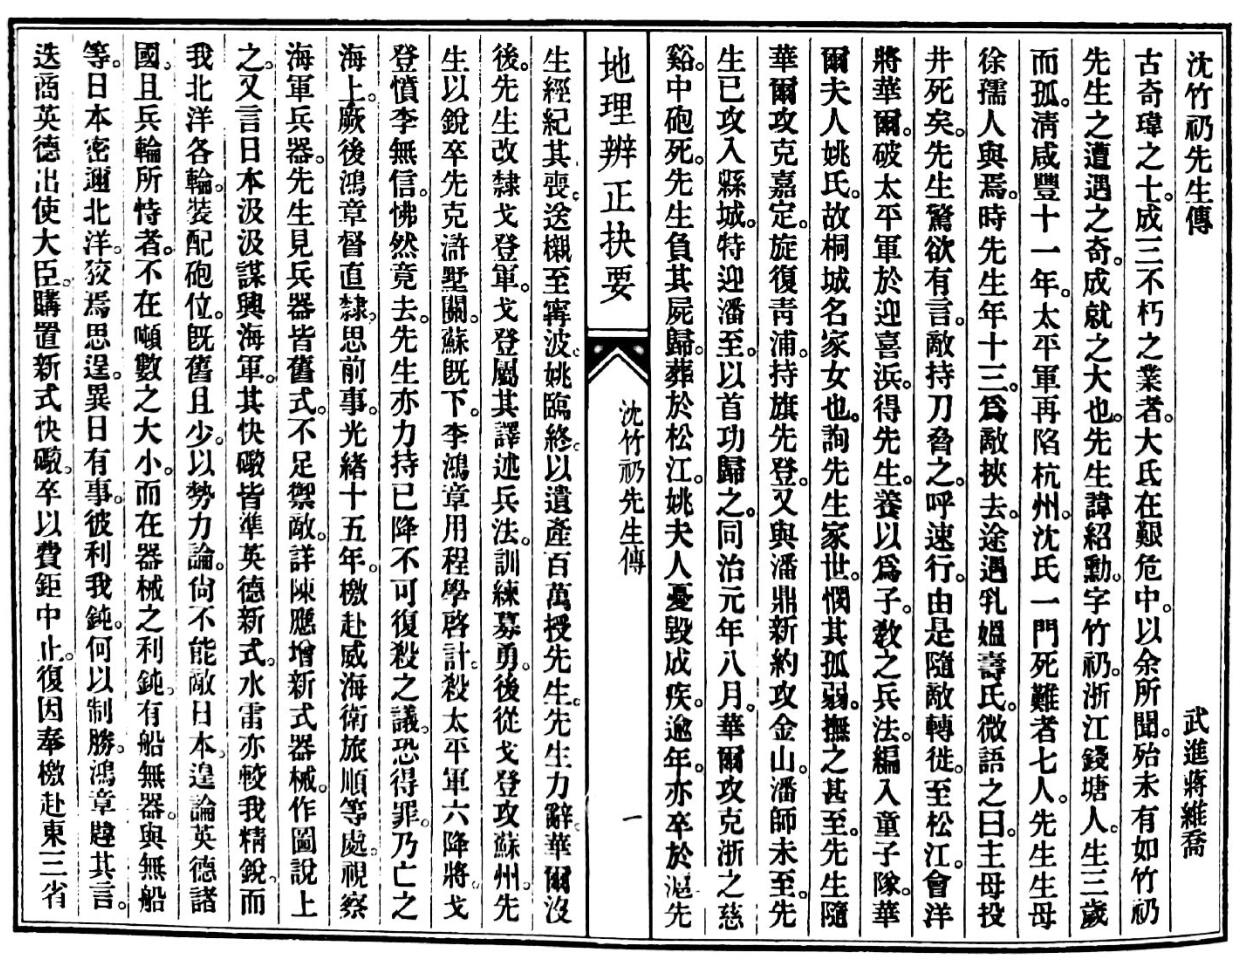 沈竹礽先生傳　武進蔣維喬
古奇瑋之士。成三不朽之業者。大氐在艱危中。以余所聞。殆未有如竹礽
先生之遭遇之奇。成就之大也。先生諱紹勳。字竹礽。浙江錢塘人。生三歲
而孤。淸咸豐十一年。太平軍再陷杭州。沈氏一門死難者七人。先生生母
徐孺人與焉。時先生年十三。爲敵挾去。途遇乳媼壽氏。微語之曰。主母投
井死矣。先生驚欲有言。敵持刀脅之。呼速行。由是隨敵轉徙。至松江。會洋
將華爾。破太平軍於迎喜浜。得先生。養以爲子。敎之兵法。編入童子隊。華
爾夫人姚氏。故桐城名家女也。詢先生家世。憫其孤弱。撫之甚至。先生隨
華爾攻克嘉定。旋復靑浦。持旗先登。又與潘鼎新約攻金山。潘師未至。先
生已攻入縣城。特迎潘至。以首功歸之。同治元年八月。華爾攻克浙之慈
谿。中砲死。先生負其屍歸。葬於松江。姚夫人憂毀成疾。逾年。亦卒於滬。先
地理辨正抉要
沈竹礽先生傳
一
生經紀其喪。送櫬至寗波。姚臨終。以遺產百萬授先生。先生力辭。華爾沒
後。先生改隸戈登軍。戈登屬其譯述兵法。訓練募勇。後從戈登攻蘇州。先
生以銳卒先克滸墅關。蘇旣下。李鴻章用程學啓計。殺太平軍六降將。戈
登憤李無信。怫然竟去。先生亦力持已降不可復殺之議。恐得罪。乃亡之
海上。厥後鴻章督直隸。思前事。光緒十五年。檄赴威海衞旅順等處。視察
海軍兵器。先生見兵器皆舊式。不足禦敵。詳陳應增新式器械。作圖說上
之。又言日本汲汲謀興海軍。其快礮皆準英德新式。水雷亦較我精銳。而
我北洋各輪。裝配砲位。旣舊且少。以勢力論。尙不能敵日本。遑論英德諸
國。且兵輪所恃者。不在噸數之大小。而在器械之利鈍。有船無器。與無船
等。日本密邇北洋。狡焉思逞。異日有事。彼利我鈍。何以制勝。鴻章韙其言。
迭商英德出使大臣。購置新式快礮。卒以費鉅中止。復因奉檄赴東三省